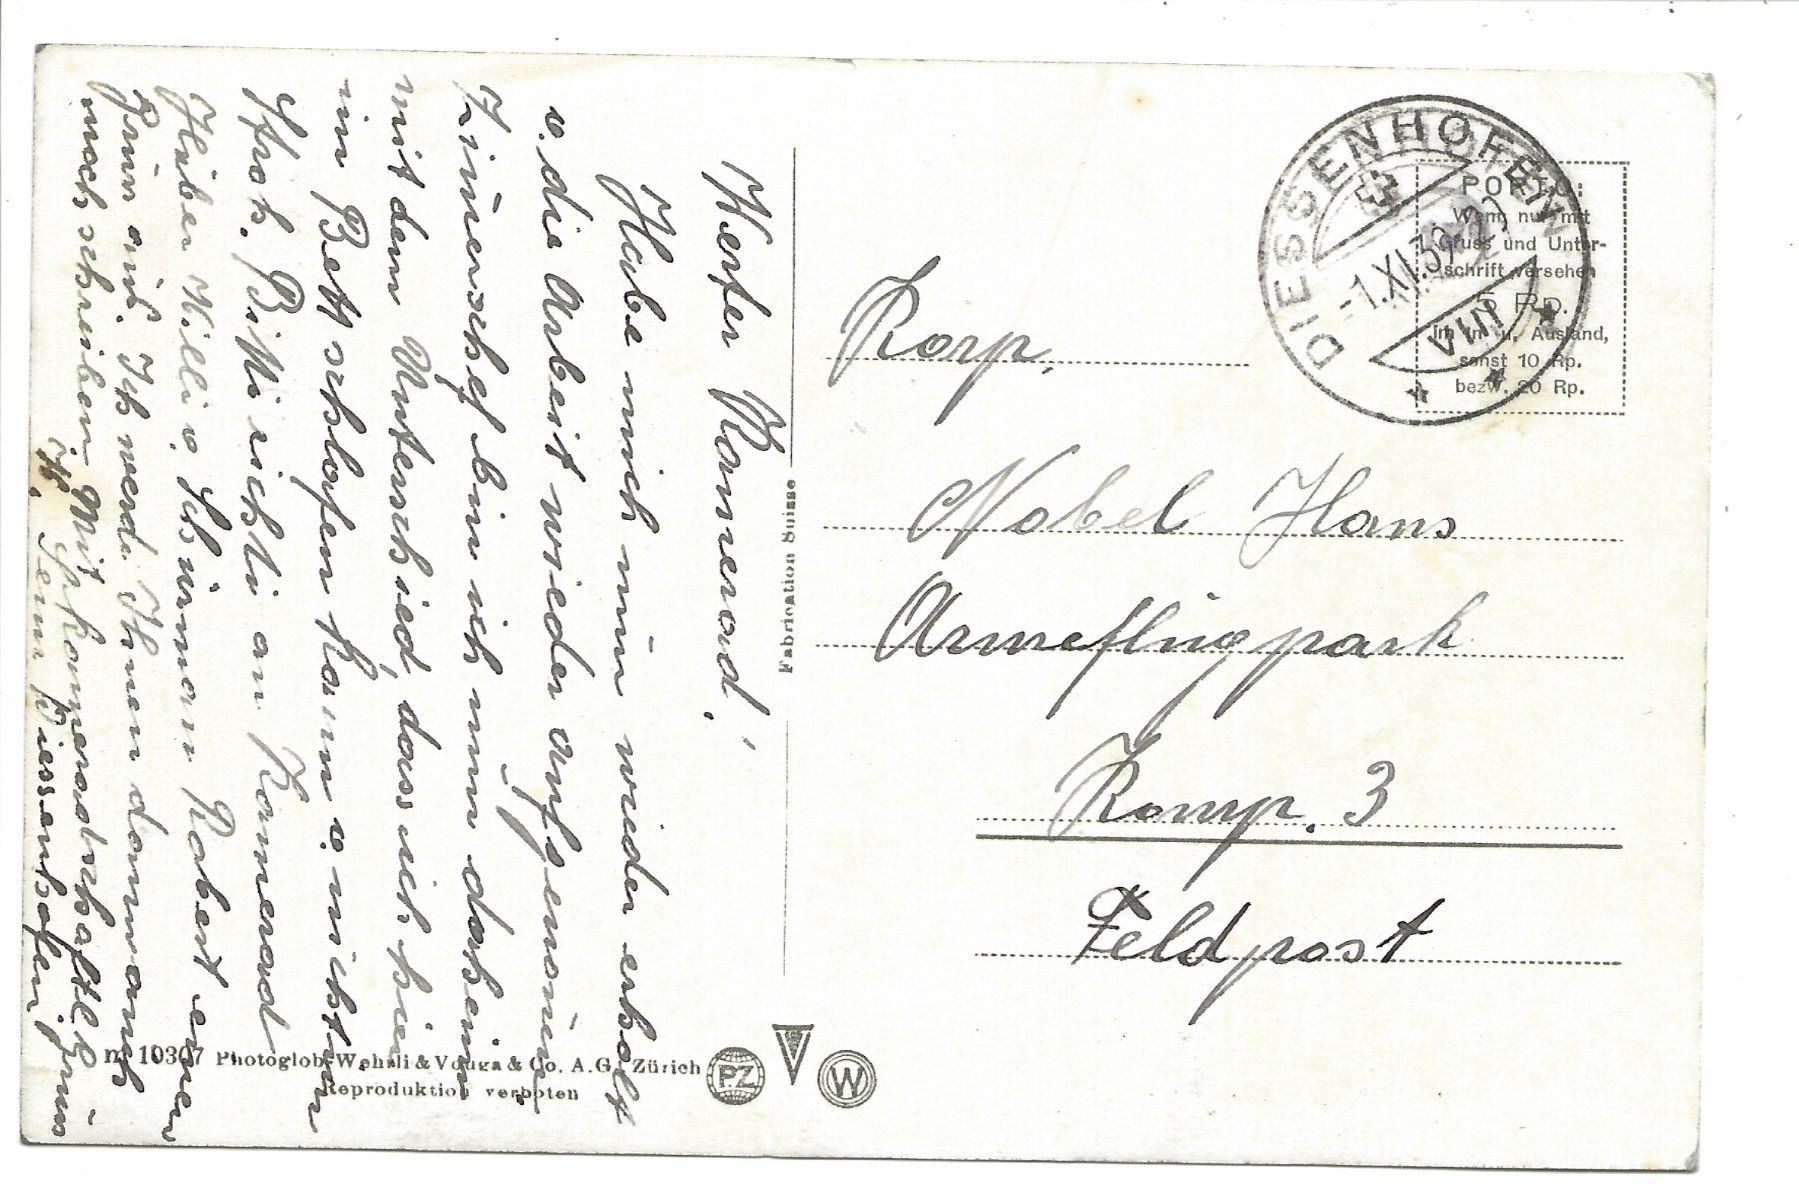 Werter Kamerad!
Habe mich nun wieder erholt
u. die Arbeit wieder aufgenom̄en.
Zim̄erchef bin ich nun daheim
mit dem Unterschied, dass ich hier
im Bett schlafen kann u. nicht im
Stroh. Bitte richti an Kamerad
Huber Willi u. Schürmann Robert einen
Gruss aus. Ich werde Ihnen dann auch
noch schreiben. Mit Kameradschaftlich. Gruss
Diessenhofen.
Fabrication Suisse
DIESSENHOFEN
-1.XII.39.
VIII
PORTO:
Wenn nur mit
Gruss und Unter-
schrift versehen
5 Rp.
im In- u. Ausland,
sonst 10 Rp.
bezw. 20 Rp.
Korp.
Nobel Hans
Armeeflugpark
Komp. 3
Feldpost
nr 10307 Photoglob-Wehrli & Vouga & Co. A.G. Zürich
Reproduktion verboten
PZ V W